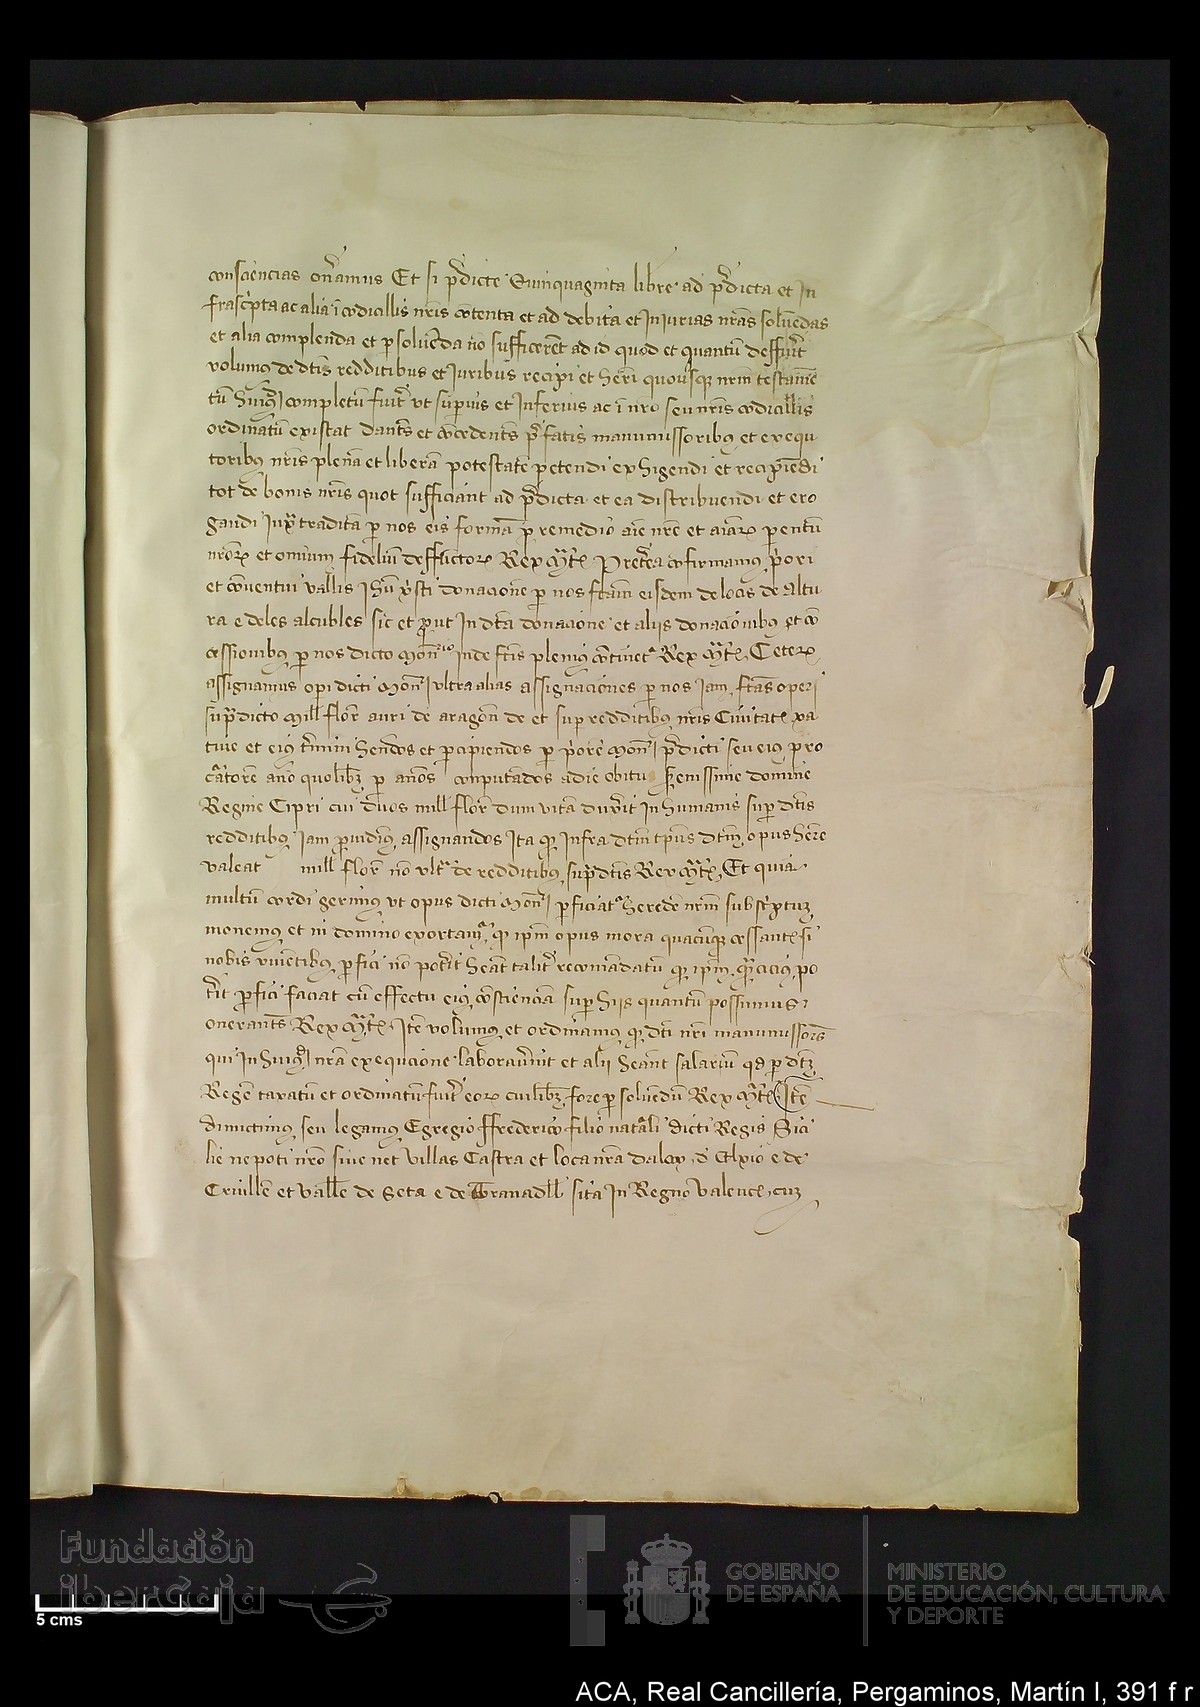 consciencias on̄amus Et si p̄dicte Quinquaginta libre ad p̄dicta et In
frasc̄pta ac alia ī codicillis nr̄is cōtenta et ad debita et Iniurias nr̄as soluēdas
et alia complenda et ꝑsoluēda nō sufficerēt ad id quod et quantū deffuīt
volumꝰ de dc̄is redditibus et Iuribus recipi et heri quousqꝫ nrm̄ testamē
tū huiꝰ completū fuīt vt supius et Inferius ac ī nr̄o seu nr̄is codicillis
ordinatū existat dantes et cōcedentes p̄fatis manumissoribꝰ et exequ
toribꝰ nr̄is plenā et liberā potestatē petendi exhigendi et recipiēdi
tot de bonis nr̄is quot sufficiant ad p̄dicta et ea distribuendi et ero
gandi iux̄ traditā ꝑ nos eis formā ꝓ remedio aīe nr̄e et aīaꝝ parentū
nr̄oꝝ et omium fidelium deffūctoꝝ Rex Mart̄. Pretēa cōfirmamꝰ p̄ori
et cōuentui vallis Ihū xp̄sti donacionē ꝑ nos fc̄am eisdem de locis de altu
ra e deles alcubles sic et ꝓut In dc̄a donacione et aliis donacionibꝰ et cō
cessionibꝰ ꝑ nos dicto Monrio Inde fc̄is plenius cōtinet̄ Rex Mart̄. Ceteꝝ
assignamus opi dicti Monrī vltra alias assignaciones ꝑ nos Iam fc̄as operi
sup̄dicto Mill flor̄ auri de aragon̄ de et sup redditibꝰ nr̄is Ciuitat̄ xa
tiue et eiꝰ t̄mini hendos et ꝑcipiendos ꝑ p̄orē Monrī p̄dicti seu eiꝰ pro
c̄atorē anō quolibꝫ ꝑ anos conputādos a die obitu Sereniss̄ime domine
Regine Cipri cui duos mill flor̄ dum vitā dux̄it In humanis sup dc̄is
redditibꝰ Iam ꝓuidimꝰ assignandos Ita qꝫ Infra dc̄m tp̄us dc̄m opus hēre
valeat mill flor̄ nō vlt̄ de redditibꝰ sup̄dc̄is Rex Mart̄. Et quia
multū cordi gerimꝰ vt opus dicti Monrī ꝑficiat̄ heredē nrm̄ subsc̄ptuꝫ
monemꝰ et in domino exortamꝰ qꝫ ip̄m opus mora quacūqꝫ cessante si
nobis viuētibꝰ ꝑfici nō pot̄it hēat talit̄ recomādatū qꝫ ip̄m qm̄ ciciꝰ po
t̄it ꝑfici faciat cū effectu eiꝰ cōscienciā sup hiis quantū possumus
onerantes Rex Mart̄. Itē volumꝰ et ordinamꝰ qꝫ dc̄i nr̄i manumissores
qui In huiꝰ nr̄a exequcione laborauīnt et alii hēant salariū qd ꝑ dc̄m
Regē taxatū et ordinatū fuīt eoꝝ cuilibꝫ fore ꝑsoluēdū Rex Mart̄. Itē
dimictimꝰ seu legamꝰ Egregio ffrederico filio nat̄ali dicti Regis Sici
lie nepoti nr̄o siue net villas Castra et loca nr̄a dalcoy d Elxio e de
Criuillē et valle de Seta e de Trauadell sita In Regno Valenc̄. cuꝫ
5 cms
Fundación
iberCaja
GOBIERNO
DE ESPAÑA
MINISTERIO
DE EDUCACIÓN, CULTURA
Y DEPORTE
ACA, Real Cancillería, Pergaminos, Martín I, 391 f r